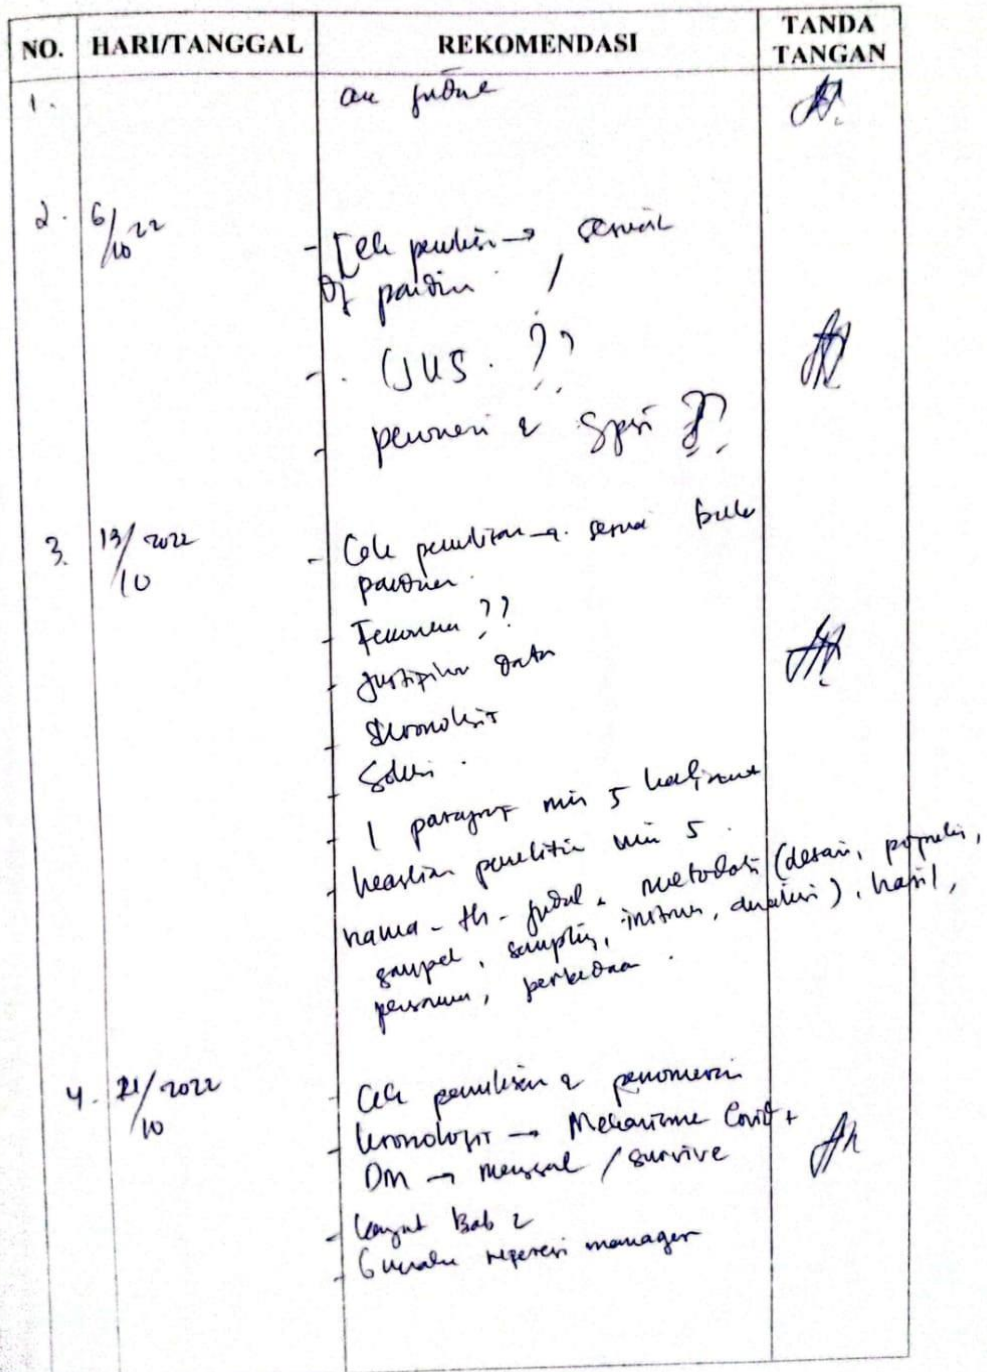 NO. HARI/TANGGAL REKOMENDASI TANDA TANGAN
1. acc judul
2. 6/10 22
- Cek penulisan → sesuai
dg panduan
- (JUS. ??
- penomeran & spasi ??
3. 13/10 2022
- Cek penulisan → sesuai buku
panduan.
- Fenomena ??
- Justifikasi data
- Skronologis
- Solusi.
- 1 paragraf min 5 kalimat
- keaslian penelitian min 5.
nama - th - judul, metodologi (desain, populasi,
sampel, sampling, instrumen, analisis), hasil,
persamaan, perbedaan.
4. 21/10 2022
- Cek penulisan & penomeran
- kronologis → Mekanisme Covid +
DM → meninggal / survive
- Lanjut Bab 2
- Gunakan referensi manager